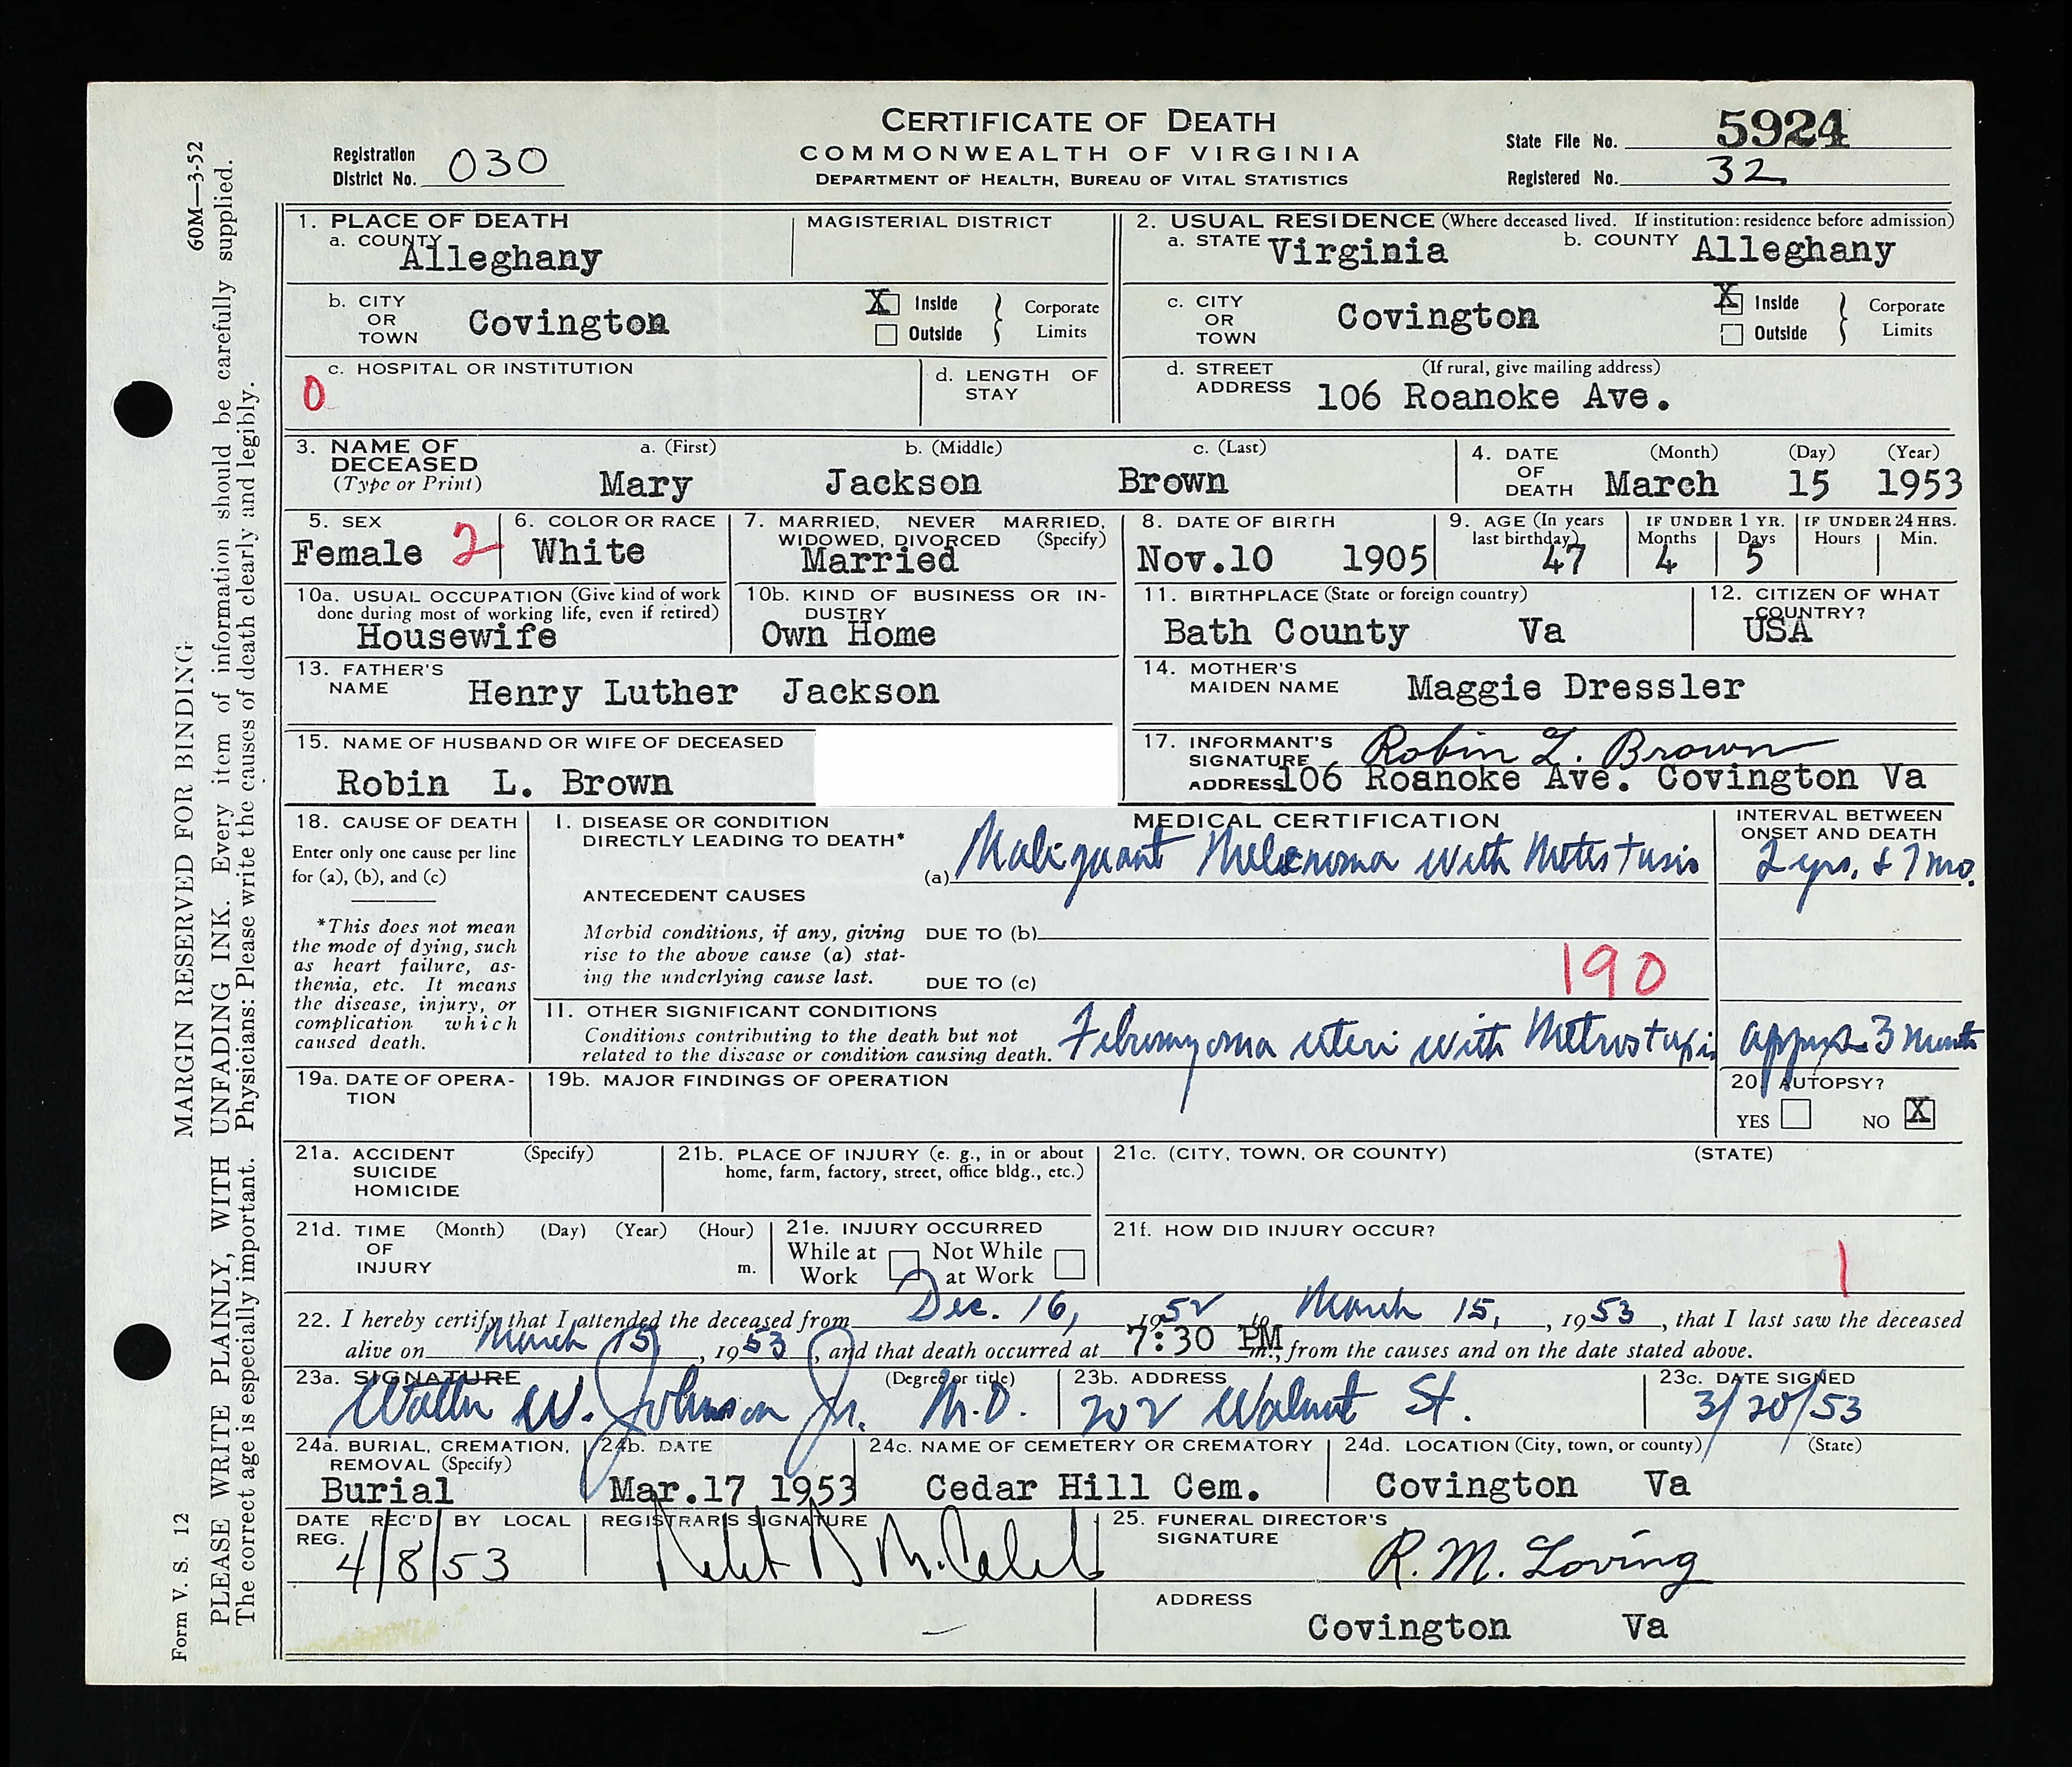 CERTIFICATE OF DEATH
COMMONWEALTH OF VIRGINIA
DEPARTMENT OF HEALTH, BUREAU OF VITAL STATISTICS
Registration District No. 030
State File No. 5924
Registered No. 32
60M—3-52
MARGIN RESERVED FOR BINDING
PLEASE WRITE PLAINLY, WITH UNFADING INK. Every item of information should be carefully supplied.
The correct age is especially important. Physicians: Please write the causes of death clearly and legibly.
Form V. S. 12
1. PLACE OF DEATH
a. COUNTY Alleghany
MAGISTERIAL DISTRICT
2. USUAL RESIDENCE (Where deceased lived. If institution: residence before admission)
a. STATE Virginia b. COUNTY Alleghany
b. CITY OR TOWN Covington X Inside Outside } Corporate Limits
c. CITY OR TOWN Covington X Inside Outside } Corporate Limits
c. HOSPITAL OR INSTITUTION
0
d. LENGTH OF STAY
d. STREET ADDRESS (If rural, give mailing address)
106 Roanoke Ave.
3. NAME OF DECEASED (Type or Print)
a. (First) b. (Middle) c. (Last)
Mary Jackson Brown
4. DATE OF DEATH (Month) (Day) (Year)
March 15 1953
5. SEX
Female 2
6. COLOR OR RACE
White
7. MARRIED, NEVER MARRIED, WIDOWED, DIVORCED (Specify)
Married
8. DATE OF BIRTH
Nov.10 1905
9. AGE (In years last birthday)
47
IF UNDER 1 YR. Months Days
4 5
IF UNDER 24 HRS. Hours Min.
10a. USUAL OCCUPATION (Give kind of work done during most of working life, even if retired)
Housewife
10b. KIND OF BUSINESS OR INDUSTRY
Own Home
11. BIRTHPLACE (State or foreign country)
Bath County Va
12. CITIZEN OF WHAT COUNTRY?
USA
13. FATHER'S NAME Henry Luther Jackson
14. MOTHER'S MAIDEN NAME Maggie Dressler
15. NAME OF HUSBAND OR WIFE OF DECEASED
Robin L. Brown
17. INFORMANT'S SIGNATURE Robin L. Brown
ADDRESS 106 Roanoke Ave. Covington Va
18. CAUSE OF DEATH
Enter only one cause per line for (a), (b), and (c)
*This does not mean the mode of dying, such as heart failure, asthenia, etc. It means the disease, injury, or complication which caused death.
MEDICAL CERTIFICATION
INTERVAL BETWEEN ONSET AND DEATH
I. DISEASE OR CONDITION DIRECTLY LEADING TO DEATH*
(a) Malignant Melanoma with Metastasis 2 yrs. & 7 mo.
ANTECEDENT CAUSES
Morbid conditions, if any, giving rise to the above cause (a) stating the underlying cause last.
DUE TO (b)
DUE TO (c)
190
II. OTHER SIGNIFICANT CONDITIONS
Conditions contributing to the death but not related to the disease or condition causing death.
Fibromyoma uteri with Metrostaxis approx 3 months
19a. DATE OF OPERATION
19b. MAJOR FINDINGS OF OPERATION
20. AUTOPSY?
YES NO X
21a. ACCIDENT SUICIDE HOMICIDE (Specify)
21b. PLACE OF INJURY (e. g., in or about home, farm, factory, street, office bldg., etc.)
21c. (CITY, TOWN, OR COUNTY) (STATE)
21d. TIME OF INJURY (Month) (Day) (Year) (Hour) m.
21e. INJURY OCCURRED
While at Work Not While at Work
21f. HOW DID INJURY OCCUR?
1
22. I hereby certify that I attended the deceased from Dec. 16, 1952 to March 15, 1953, that I last saw the deceased
alive on March 15, 1953, and that death occurred at 7:30 PM m., from the causes and on the date stated above.
23a. SIGNATURE (Degree or title)
Walter W. Johnson Jr. M.D.
23b. ADDRESS
202 Walnut St.
23c. DATE SIGNED
3/20/53
24a. BURIAL, CREMATION, REMOVAL (Specify)
Burial
24b. DATE
Mar.17 1953
24c. NAME OF CEMETERY OR CREMATORY
Cedar Hill Cem.
24d. LOCATION (City, town, or county) (State)
Covington Va
DATE REC'D BY LOCAL REG.
4/8/53
REGISTRAR'S SIGNATURE
25. FUNERAL DIRECTOR'S SIGNATURE
R. M. Loving
ADDRESS
Covington Va